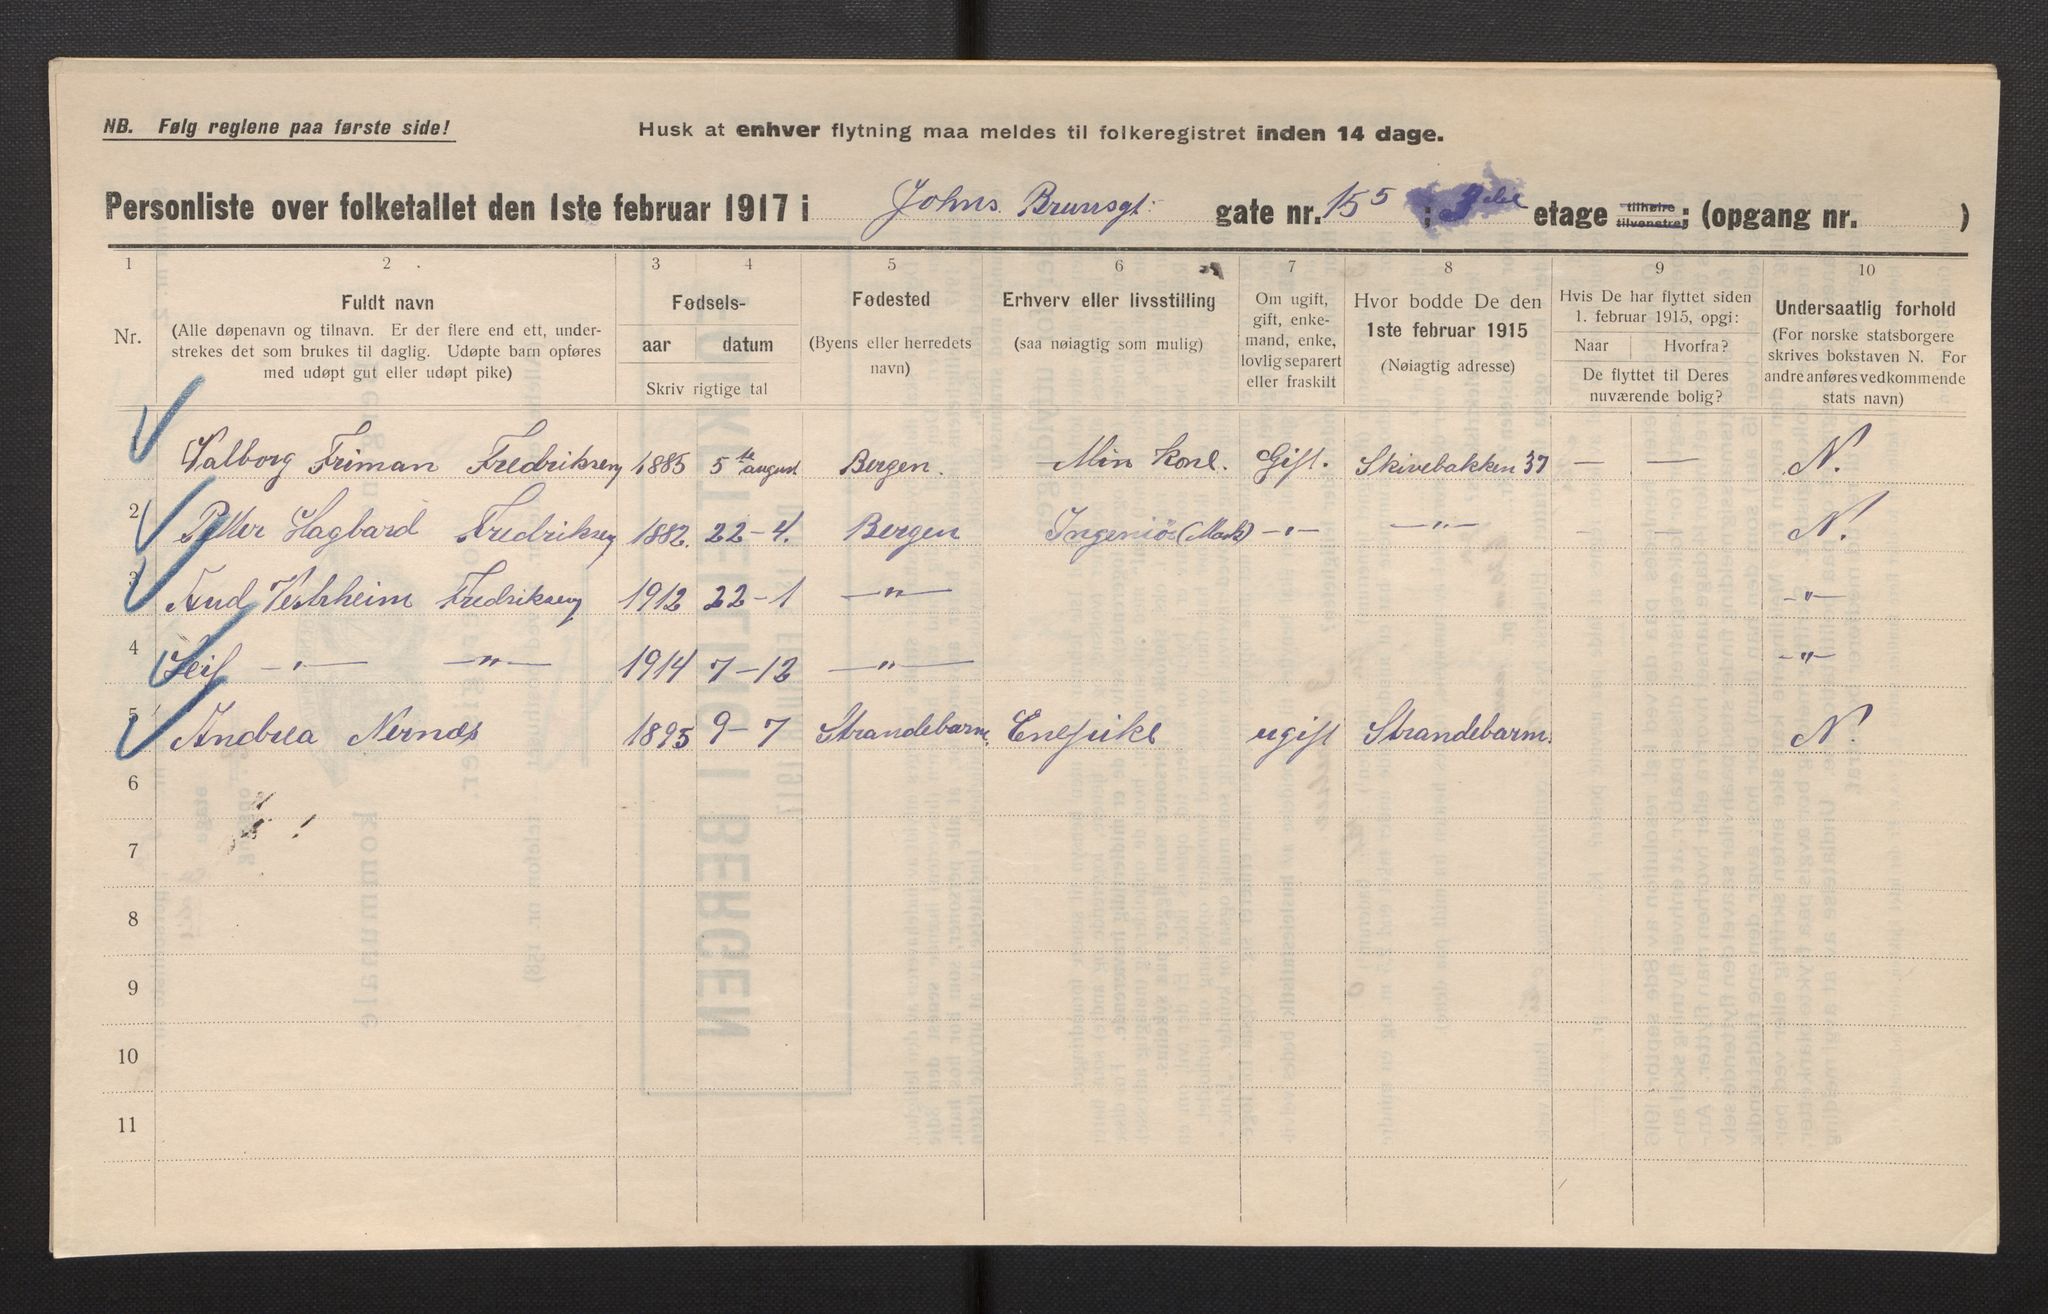 NB. Følg reglene paa første side!
Husk at enhver flytning maa meldes til folkeregistret inden 14 dage.
Personliste over folketallet den 1ste februar 1917 i Johns. Brunsgt: gate nr. 15 5 ; 3die etage tilhøire tilvenstre; (opgang nr. )
1 2 3 4 5 6 7 8 9 10
Nr.
Fuldt navn
(Alle døpenavn og tilnavn. Er der flere end ett, under-
strekes det som brukes til daglig. Udøpte barn opføres
med udøpt gut eller udøpt pike)
Fødsels-
aar datum
Skriv rigtige tal
Fødested
(Byens eller herredets
navn)
Erhverv eller livsstilling
(saa nøiagtig som mulig)
Om ugift,
gift, enke-
mand, enke,
lovlig separert
eller fraskilt
Hvor bodde De den
1ste februar 1915
(Nøiagtig adresse)
Hvis De har flyttet siden
1. februar 1915, opgi:
Naar Hvorfra?
De flyttet til Deres
nuværende bolig?
Undersaatlig forhold
(For norske statsborgere
skrives bokstaven N. For
andre anføres vedkommende
stats navn)
Valborg Friman Fredriksen 1885 5te august Bergen. Min kone. Gift. Skivebakken 37 — — N.
2 Petter Hagbard Fredriksen 1882. 22-4. Bergen Ingeniör (Mask) -"- -"- N.
3 Aud Vestrheim Fredriksen 1912 22-1 -"- -"-
4 Leif -"- -"- 1914 7-12 -"- -"-
5 Andrea Nernæs 1895 9-7 Strandebarm. Enepike ugift Strandebarm. N.
6
7
8
9
10
11